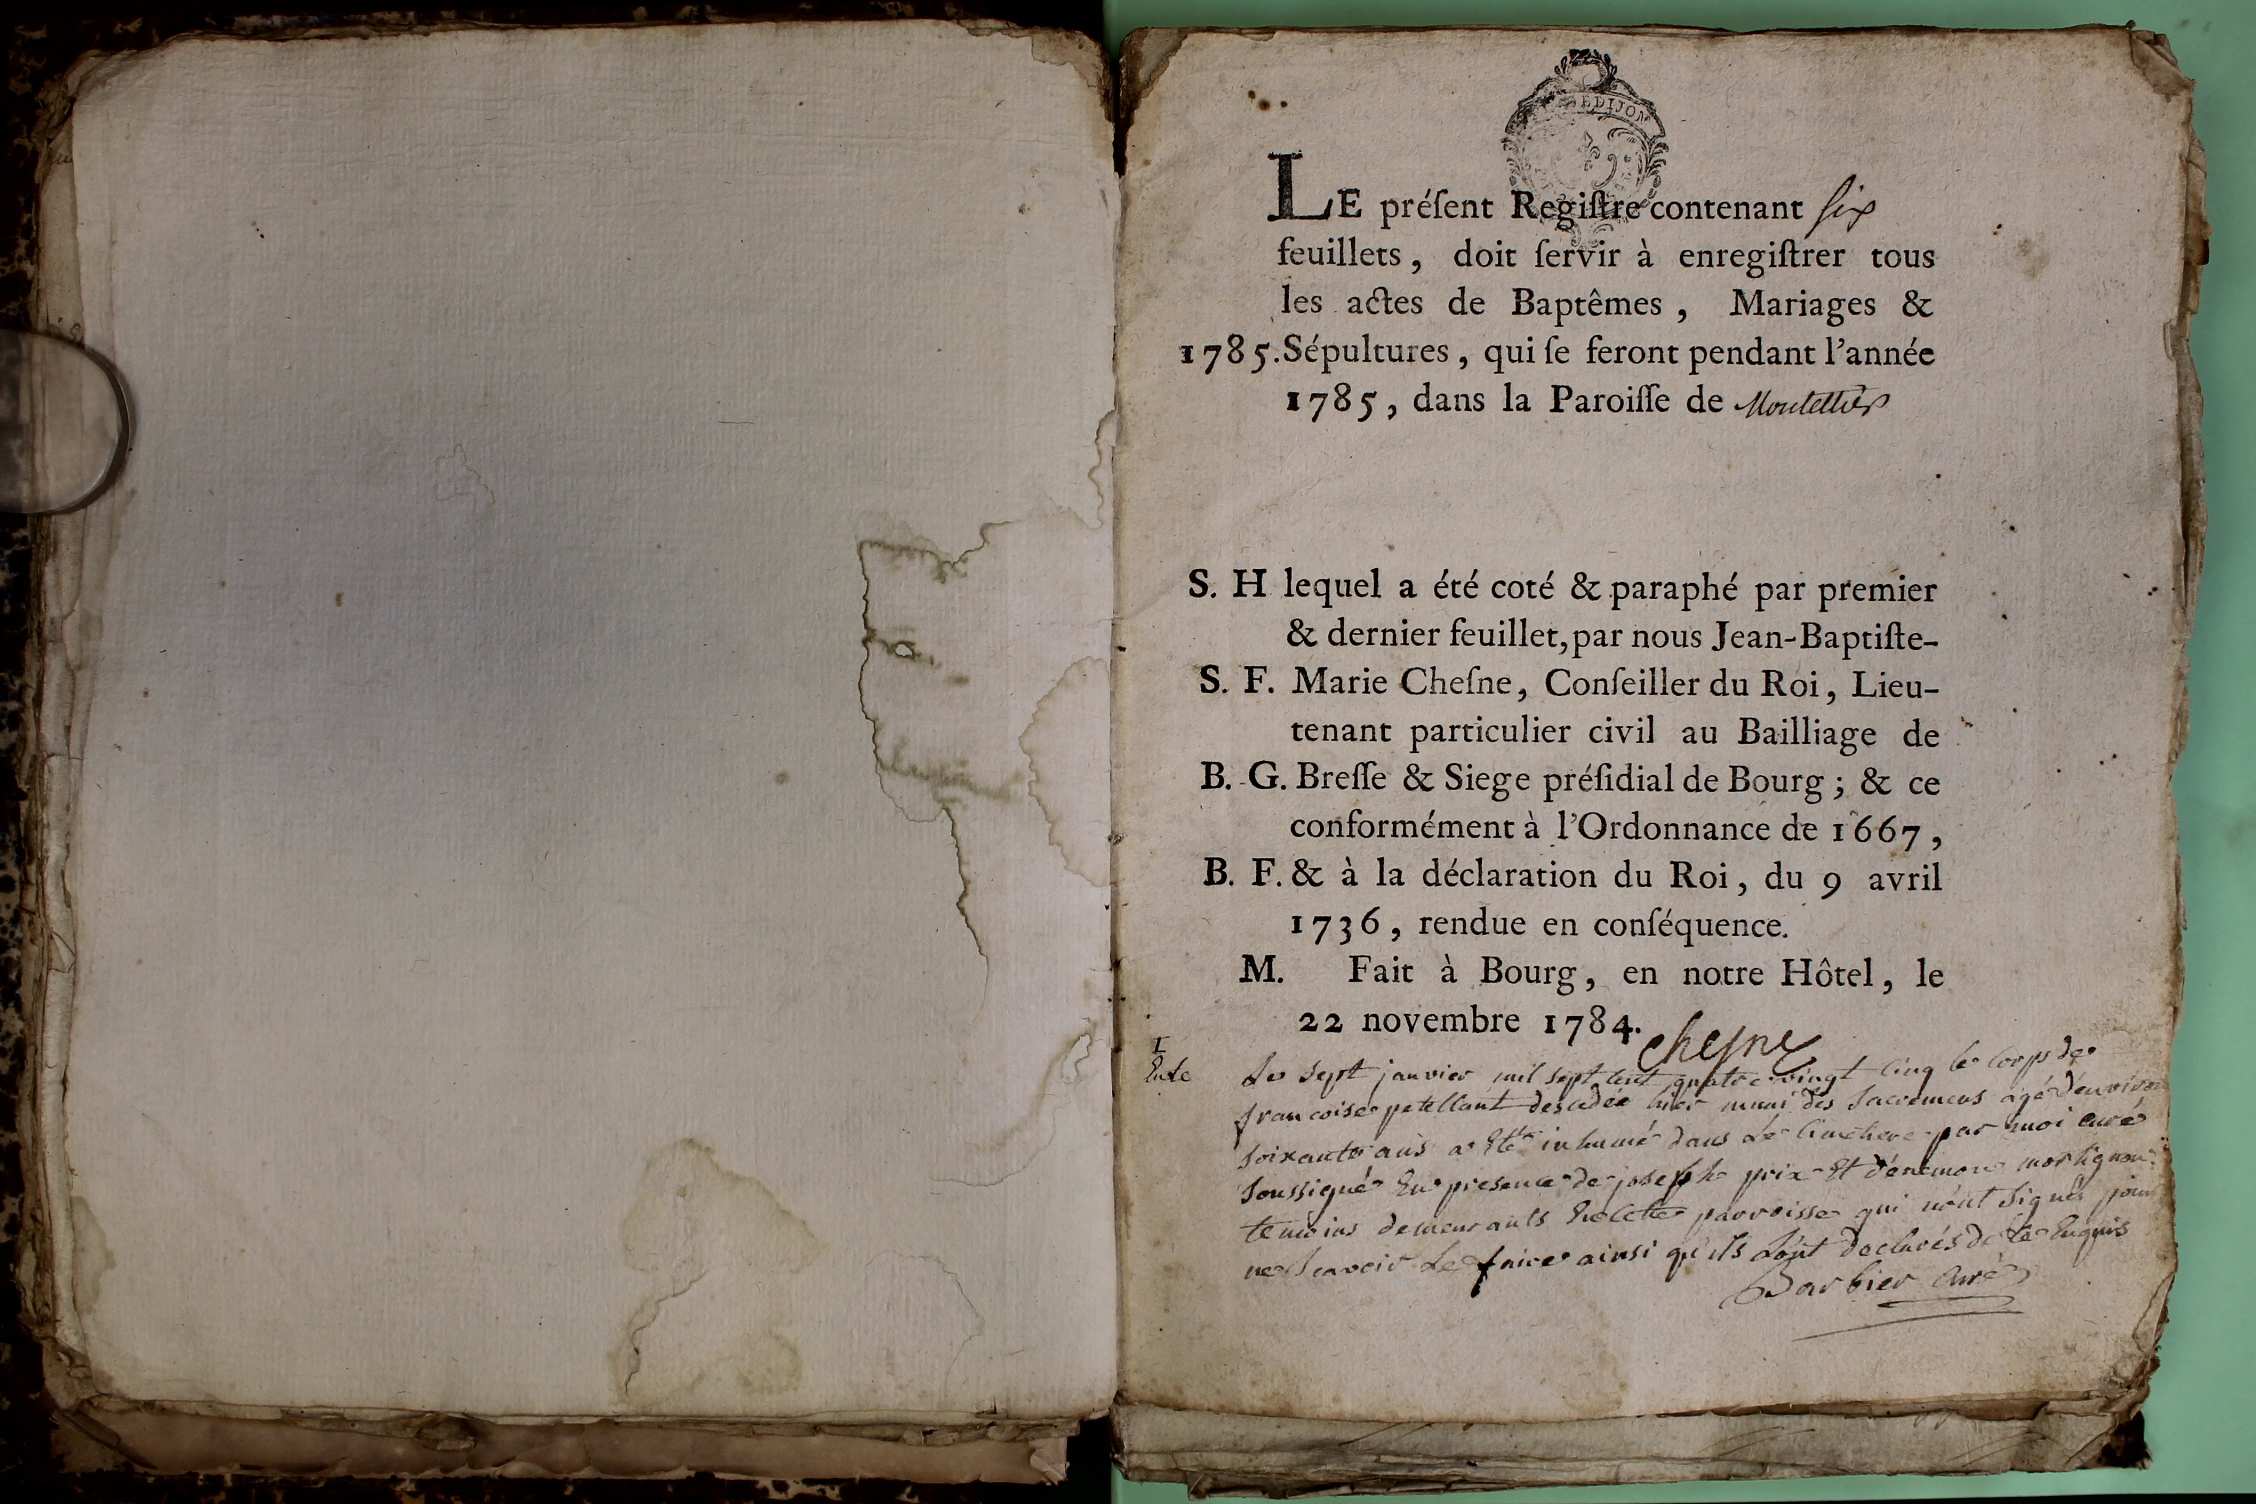 EDIJON
LE préſent Regiſtre contenant six
feuillets, doit ſervir à enregiſtrer tous
les actes de Baptêmes, Mariages &
1785. Sépultures, qui ſe feront pendant l'année
1785, dans la Paroiſſe de
S. H lequel a été coté & paraphé par premier
& dernier feuillet, par nous Jean-Baptiſte-
S. F. Marie Cheſne, Conſeiller du Roi, Lieu-
tenant particulier civil au Bailliage de
B. G. Breſſe & Siege préſidial de Bourg ; & ce
conformément à l'Ordonnance de 1667,
B. F. & à la déclaration du Roi, du 9 avril
1736, rendue en conſéquence.
M. Fait à Bourg, en notre Hôtel, le
22 novembre 1784.
chesne
1
Le sept janvier mil sept cent quatre vingt cinq le corps de
francoise petellant decedée hier muni des Sacremens agé d'environ
soixante ans a Eté inhumé dans Le cimetiere par moi curé
soussigné En presence de joseph prix Et d'enemon morlignon
temoins demeurants En cette parroisse qui n'ont signés pour
ne scavoir Le faire ainsi qu'ils L'ont declarés de ce Enquis
Barbier curé